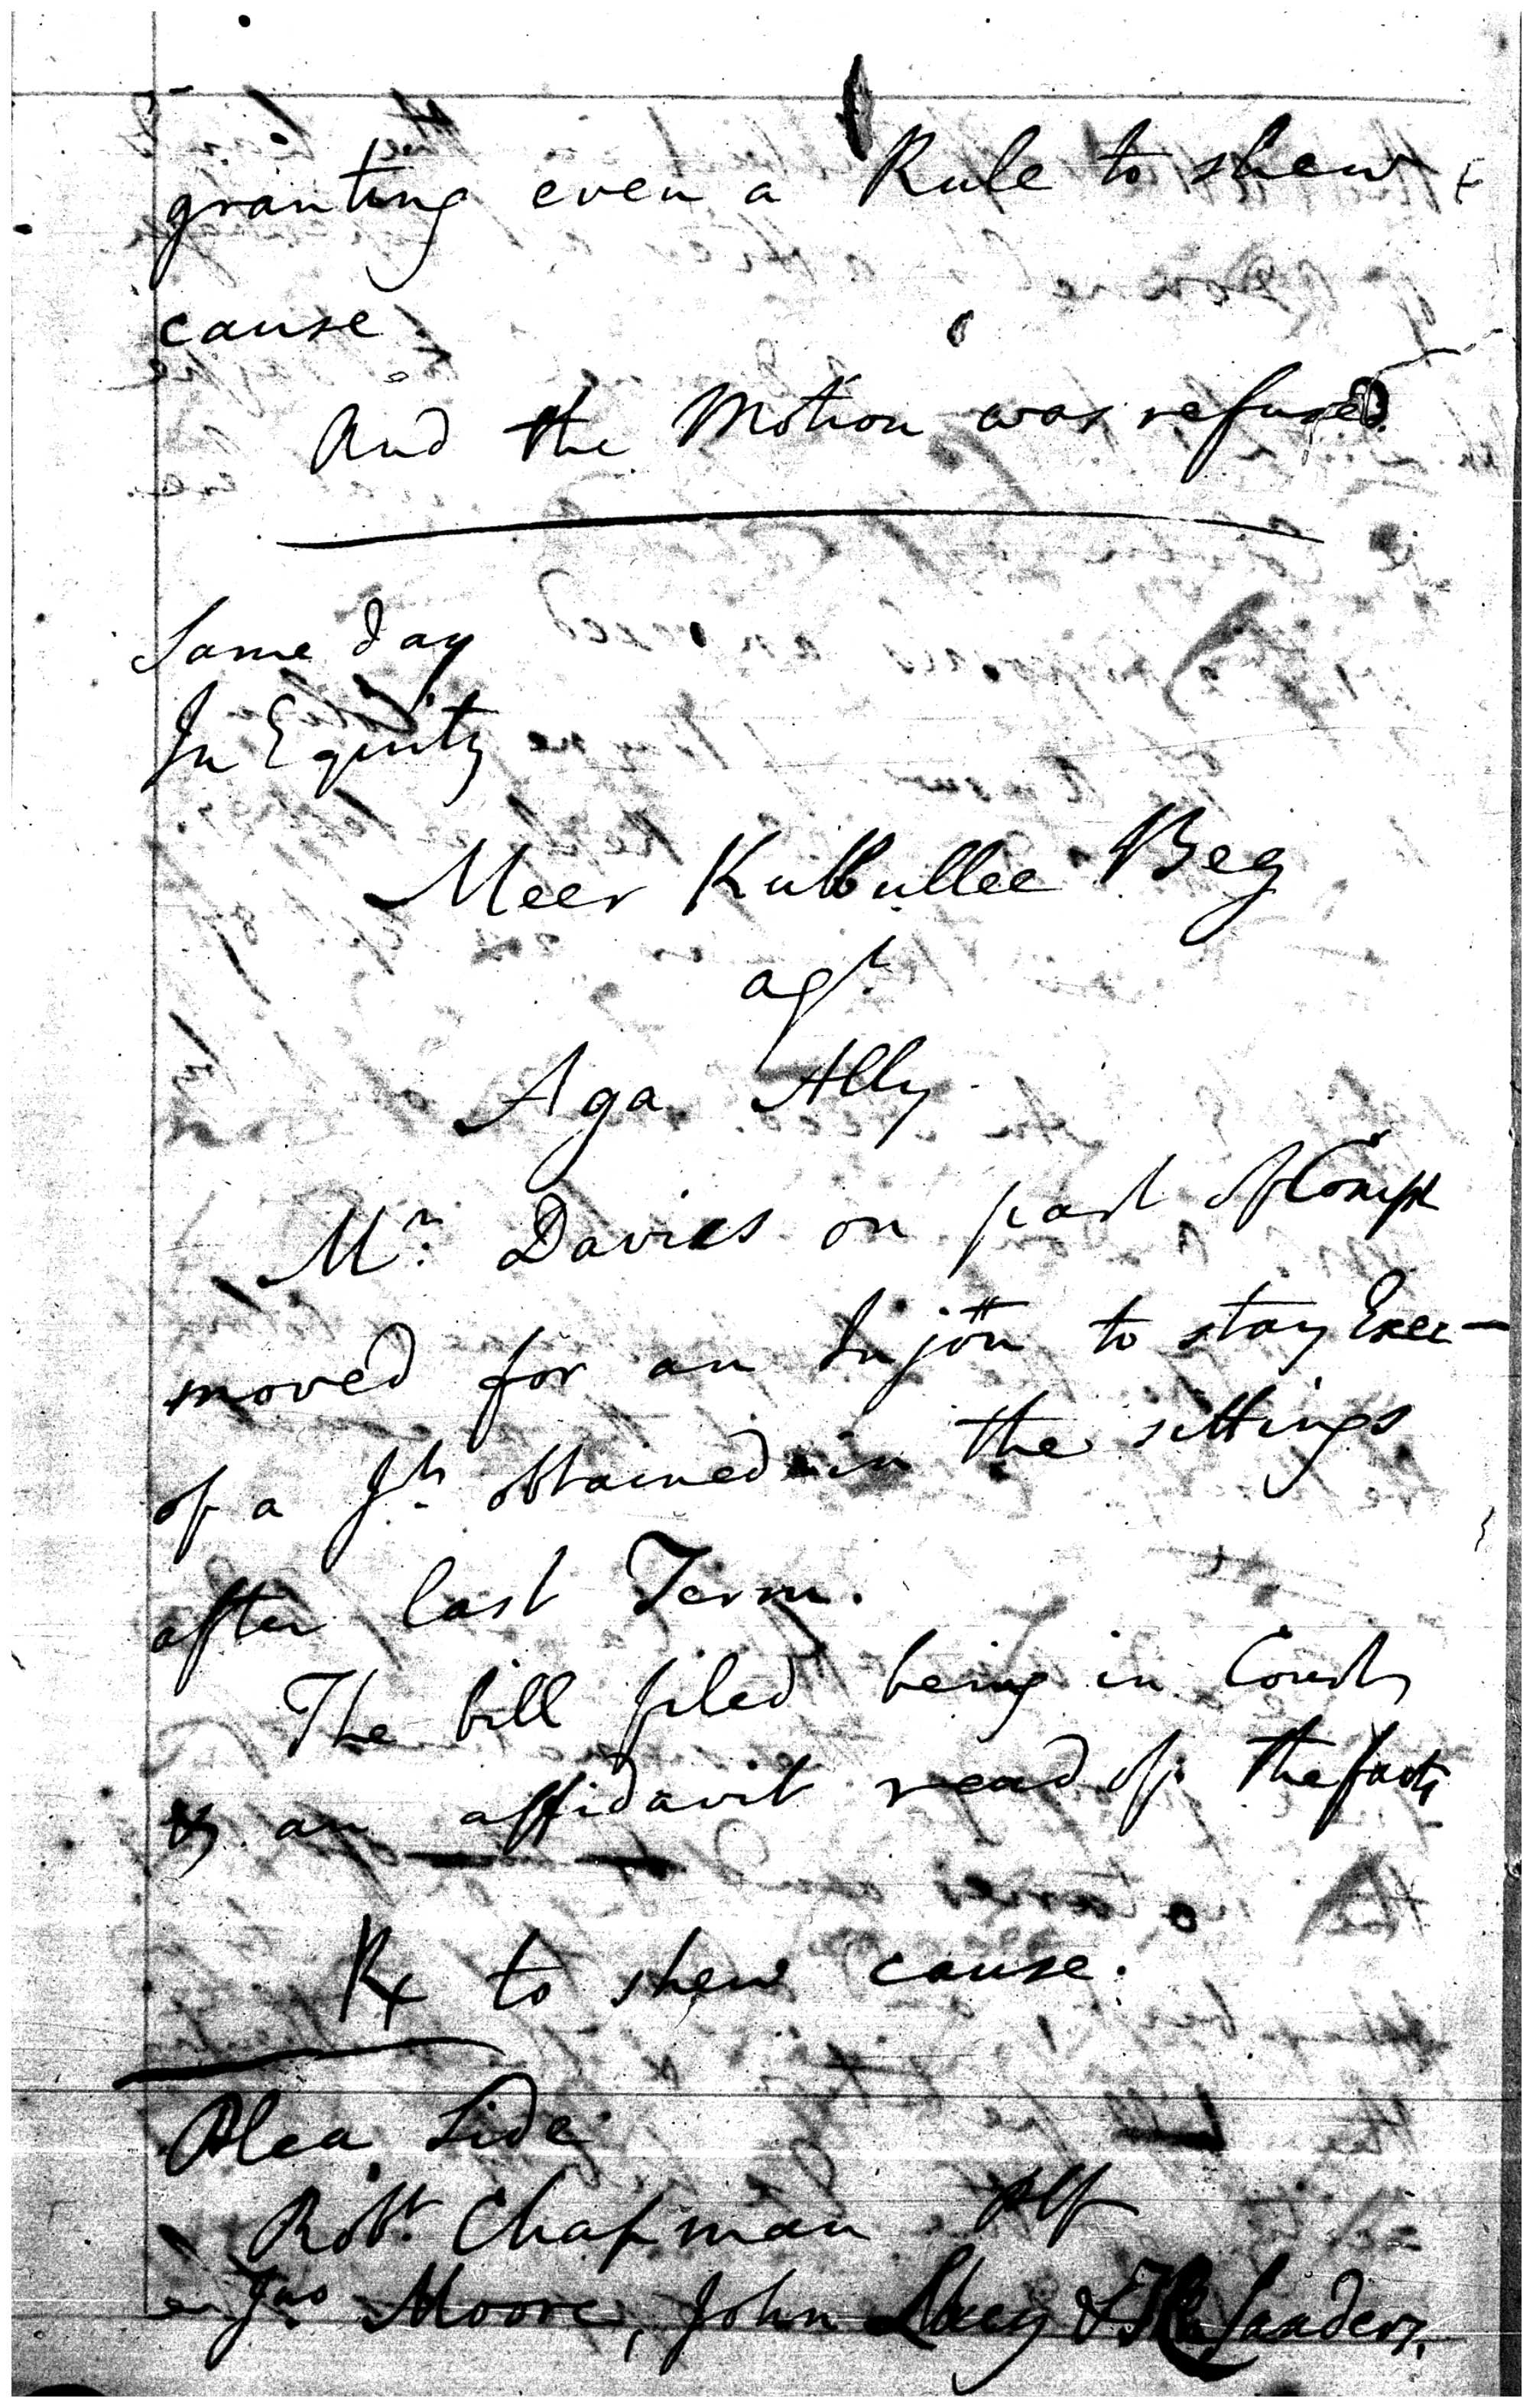 granting even a Rule to shew
cause
And the Motion was refused
Same day
In Equity
Meer Kulbullee Beg
agt.
Aga Ally
Mr. Davies on part of Compt
moved for an Injōn to stay Exec—
of a Jt. obtained in the sittings
after last Term.
The bill filed being in Court,
& an affidavit read of the facts
Rx to shew cause.
Plea Side
Robt. Chapman Plf
Jas Moore, John Lacy & Saaders.